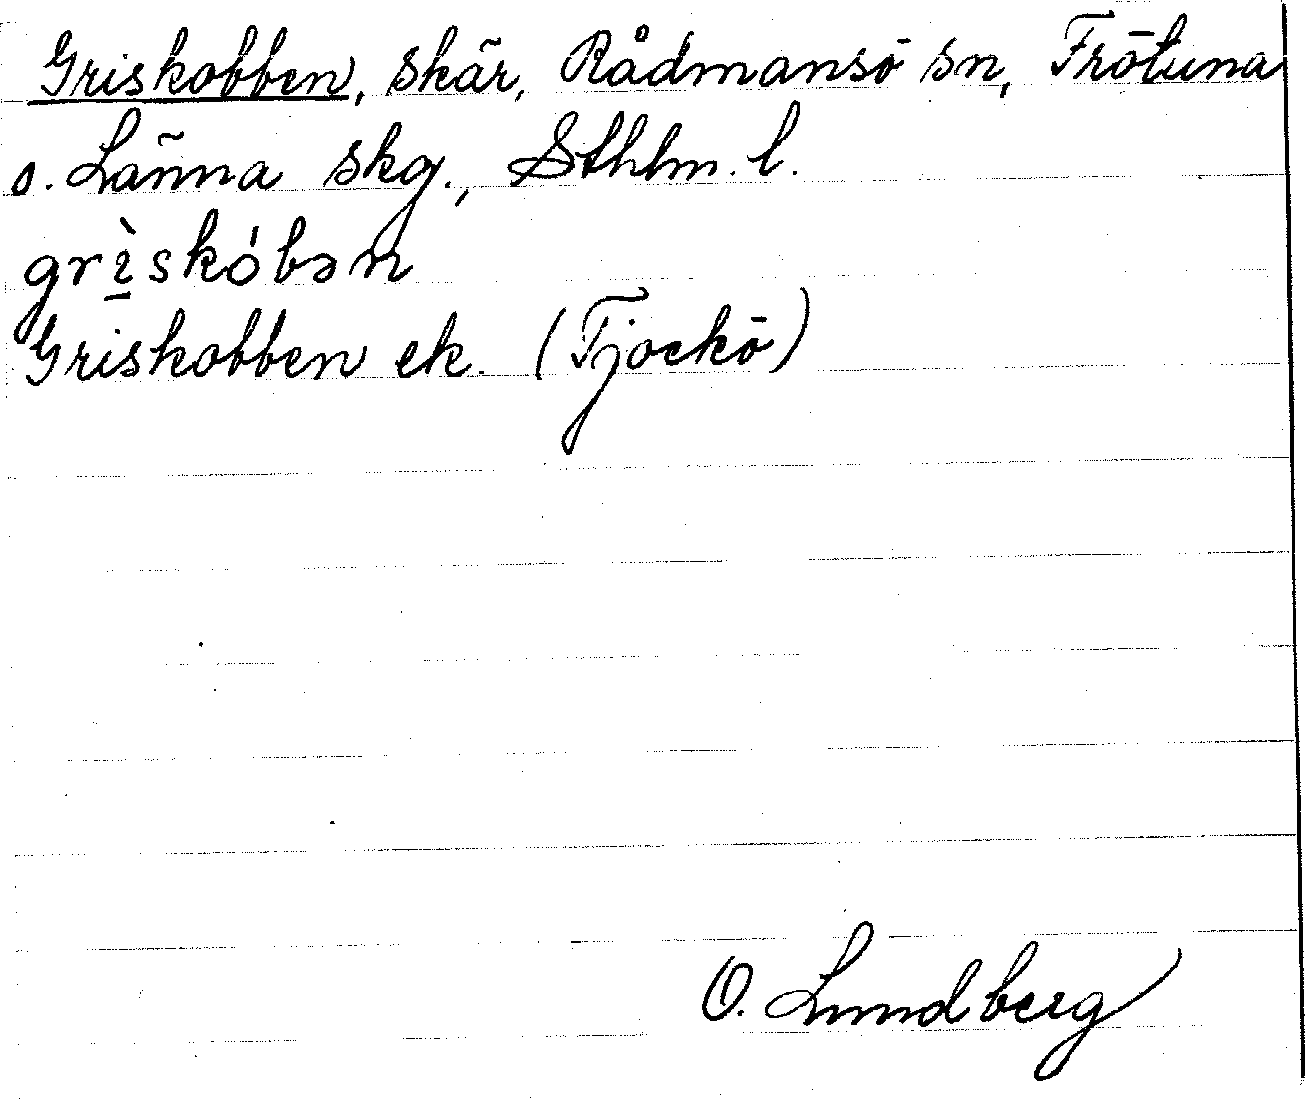 Griskobben, skär, Rådmansö sn, Frötuna
o. Länna skg., Sthlm. l.
grı̱̀skóbən
Griskobben ek. (Tjockö)
O. Lundberg